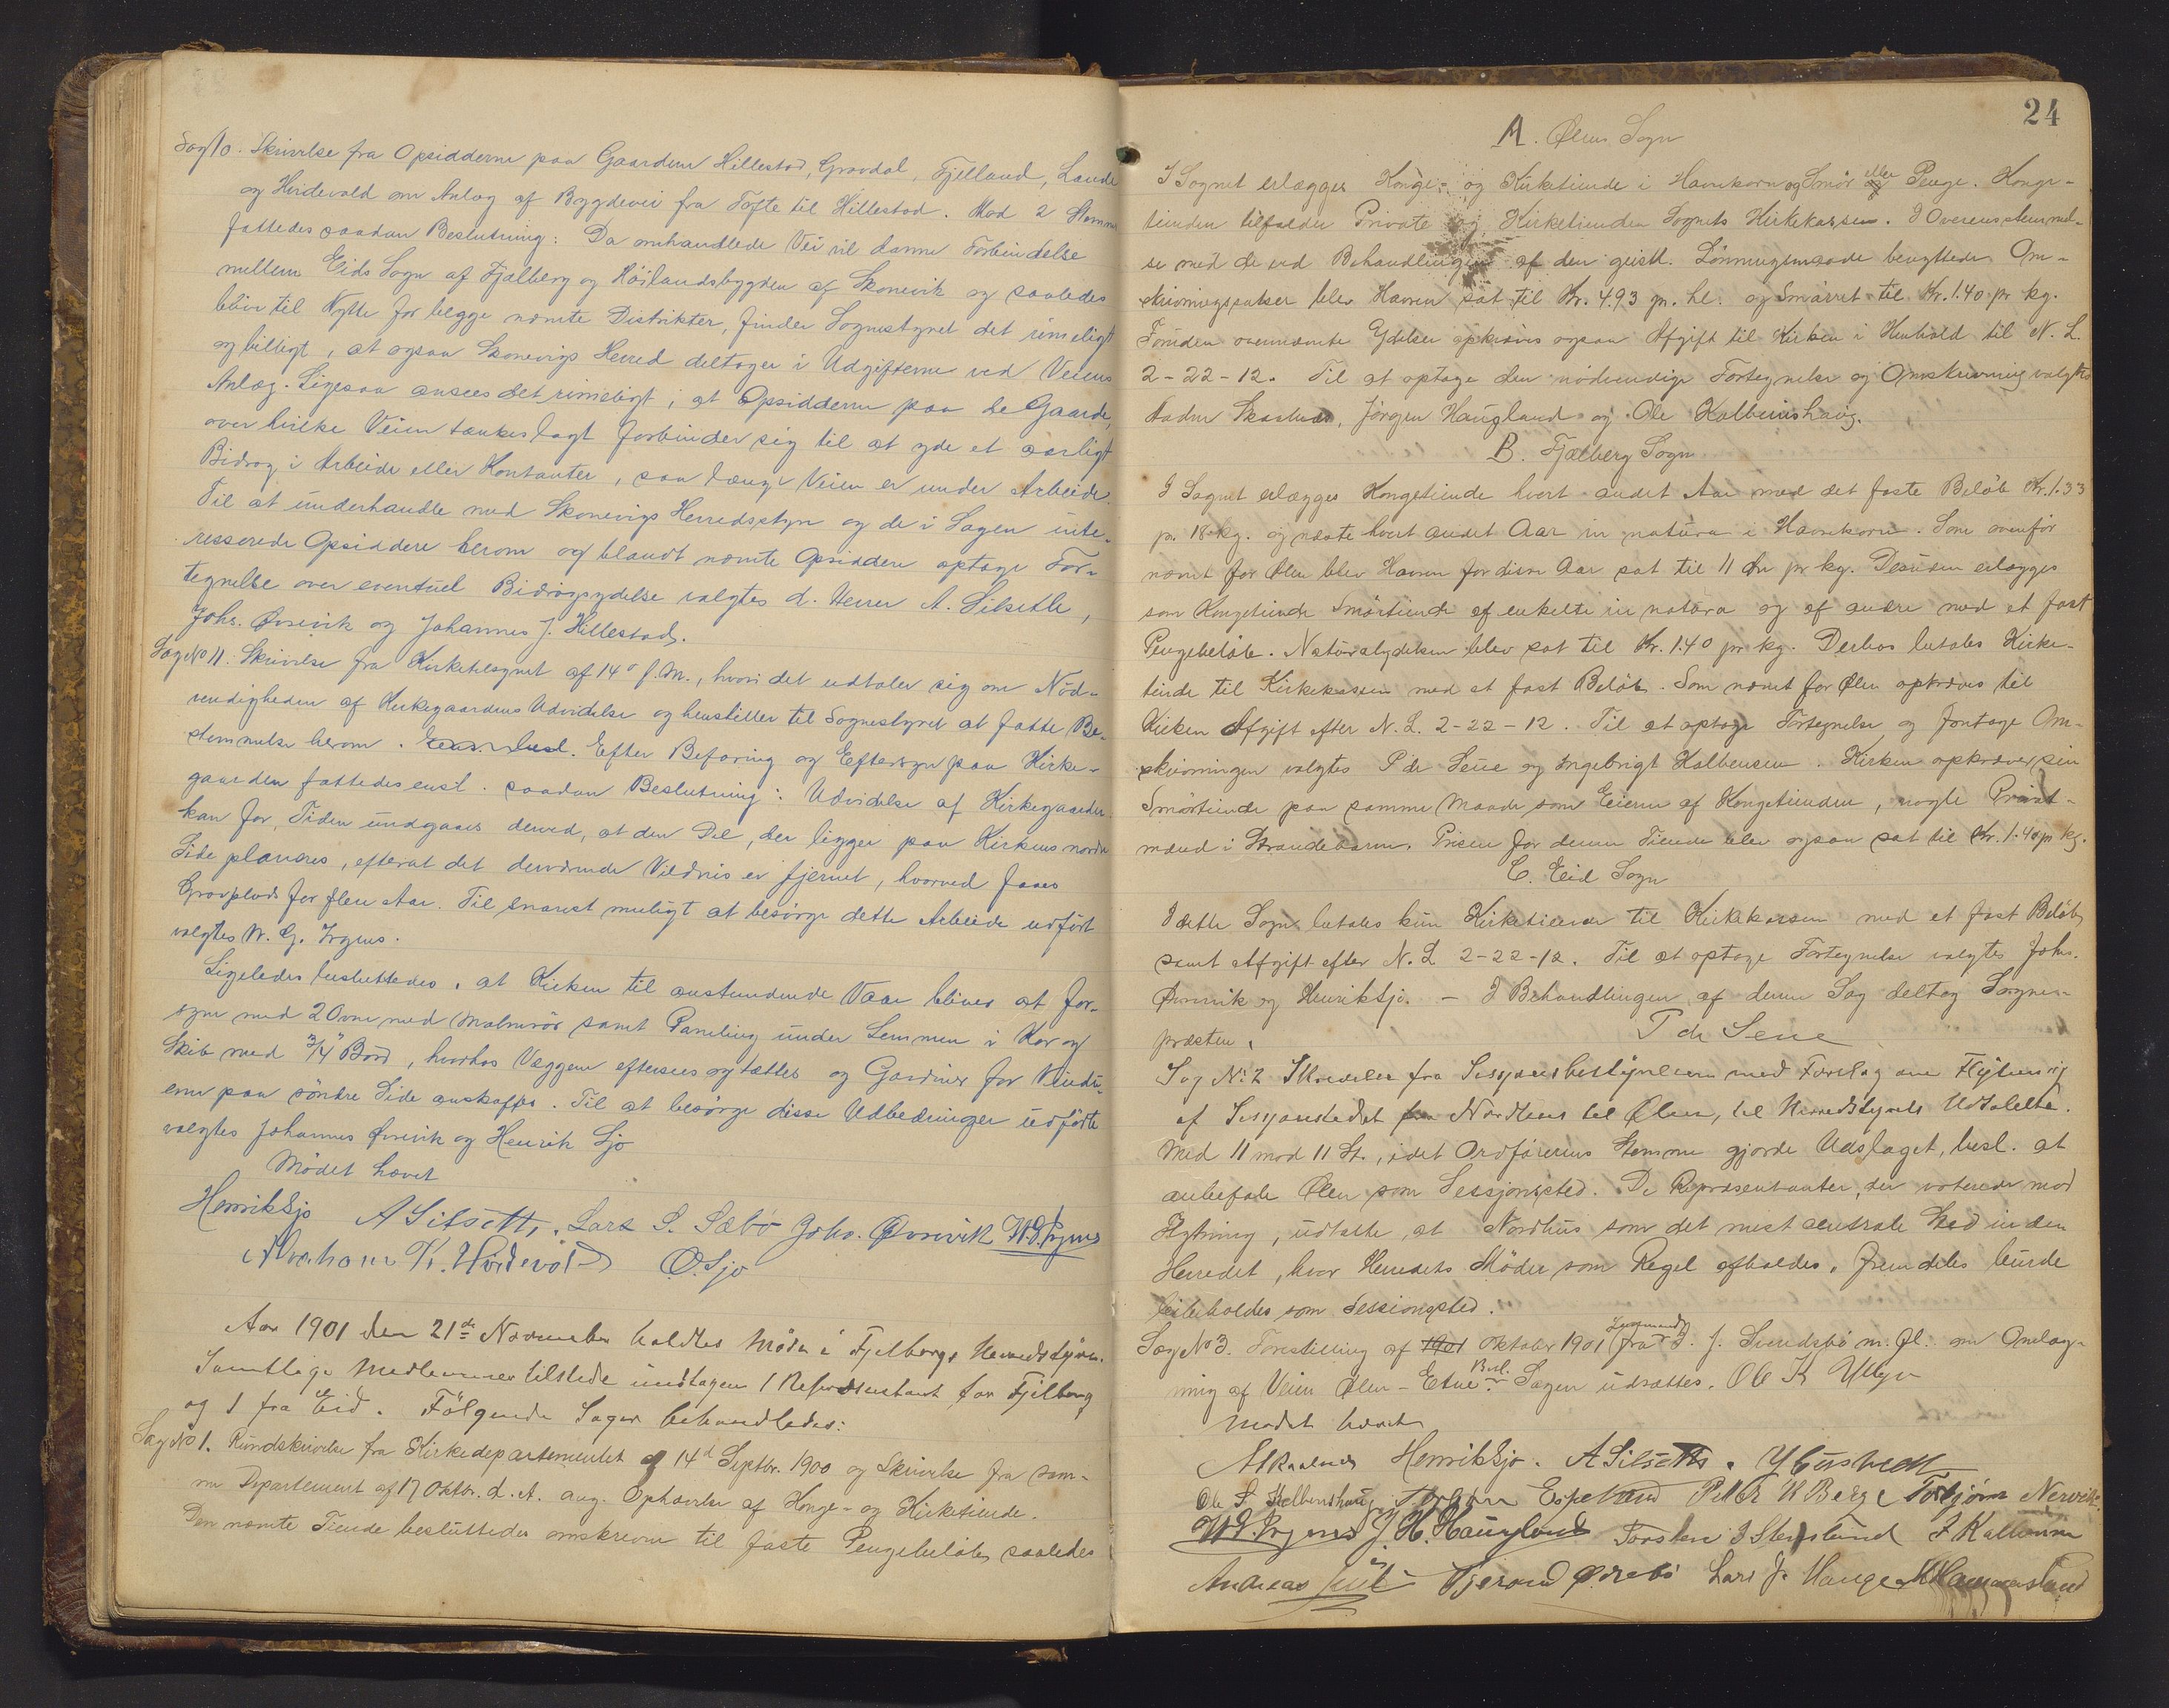 Sag 10. Skrivelse fra Opsidderne paa Gaardene Hillestad, Gravdal, Fjelland, Lande
og Hvidevold om Anlæg af Bygdevei fra Tofte til Hillestad. Mod 2 Stemmer
fattedes saadan Beslutning: Da omhandlede Vei vil danne Forbindelse
mellem Eids Sogn af Fjælberg og Höilandsbygden af Skonevik og saaledes
blive til Nytte for begge nævnte Distrikter, finder Sognestyret det rimeligt
og billigt, at ogsaa Skonevigs Herred deltager i Udgifterne ved Veiens
Anlæg. Ligesaa ansees det rimeligt, at Opsidderne paa de Gaarde,
over hvilke Veien tænkes lagt forbinder sig til at yde et aarligt
Bidrag i Arbeide eller Kontanter, saa længe Veien er under Arbeide.
Til at underhandle med Skonevigs Herredsstyre og de i Sagen inte-
resserede Opsiddere herom og blandt nævnte Opsiddere optage For-
tegnelse over eventuel Bidragsydelse valgtes d. Herrer A. Silseth,
Johs. Øvrevik og Johannes J. Hillestad.
Sag No 11. Skrivelse fra Kirketilsynet af 14de f. M., hvori det udtaler sig om Nöd-
vendigheden af Kirkegaardens Udvidelse og henstiller til Sognestyret at fatte Be-
stemmelse herom. Efter Befaring og Eftersyn paa Kirke-
gaarden fattedes enst. saadan Beslutning: Udvidelse af Kirkegaarden
kan for Tiden undgaaes derved, at den Del, der ligger paa Kirkens nordre
Side planeres, efterat det derværende Vildnis er fjernet, hvorved faaes
Gravplads for flere Aar. Til snarest muligt at besörge dette Arbeide udfört
valgtes W. G. Irgens.
Ligeledes besluttedes, at Kirken til anstundende Vaar bliver at for-
syne med 2 Ovne med Malmrör samt Paneling under Lemmen i Kor og
Skib med 3/4" Bord, hvorhos Væggene eftersees og tættes og Gardiner for Vindu-
erne paa söndre Side anskaffes. Til at besörge disse Udbedringer udförte
valgtes Johannes Øvrevik og Henrik Sjo
Mödet hævet
Henrik Sjo A Silseth, Lars S. Sæbö Johs. Øvrevik W. G. Irgens
Abraham K. Hvidevold O. Sjo
Aar 1901 den 21de November holdtes Möde i Fjelbergs Herredsstyre.
Samtlige Medlemmer tilstede undtagen 1 Repræsentant for Fjelberg
og 1 fra Eid. Fölgende Sager behandledes:
Sag No 1. Rundskrivelse fra Kirkedepartementet af 14de Septbr. 1900 og Skrivelse fra sam-
me Departement af 17 Oktbr. d. A. ang. Ophævelse af Konge- og Kirketiende.
Den nævnte Tiende besluttedes omskreven til faste Pengebeløb saaledes
24
A. Ølens Sogn
I Sognet erlægges Konge- og Kirketiende i Havrekorn og Smör eller Penge. Konge-
tienden tilfalder Private og Kirketienden Sognets Kirkekasse. I Overensstemmel-
se med de ved Behandlingen af den geistl. Lønningsmaade benyttede Om-
skrivningssatser blev Havren sat til Kr. 4.93 pr. hl. og Smörret til Kr. 1.40 pr kg.
Foruden ovennævnte Ydelser opkræves ogsaa Afgift til Kirken i Henhold til N. L.
2-22-12. Til at optage den nödvendige Fortegnelse og Omskrivning valgtes
Jörgen Haugland og Ole Kalbeinshaug.
B. Fjælberg Sogn
I Sognet erlægges Kongetiende hvert andet Aar med det faste Belöb Kr. 1.33
pr. 18 kg. og næste hvert andet Aar in natura i Havrekorn. Som ovenfor
nævnt for Ølen blev Havren for disse Aar sat til 11 Øre pr kg. Desuden erlægges
som Kongetiende Smörtiende af enkelte in natura og af andre med et fast
Pengebelöb. Naturalydelsen blev sat til Kr. 1.40 pr kg. Derhos betales Kirke-
tiende til Kirkekassen med et fast Belöb. Som nævnt for Ølen opkræves til
Kirken Afgift efter N. L. 2-22-12. Til at optage Fortegnelse og foretage Om-
skrivningen valgtes P de Seue og Ingebrigt Halvorsen. Kirken opkræver sin
Smörtiende paa samme Maade som Eierne af Kongetienden, nogle Privat-
mænd i Strandebarm. Prisen for denne Tiende blev ogsaa sat til Kr. 1.40 pr kg.
C. Eid Sogn
I dette Sogn betales kun Kirketiende til Kirkekassen med et fast Belöb
samt Afgift efter N. L 2-22-12. Til at optage Fortegnelse valgtes Johs.
Øvrevik og Henrik Sjo. - I Behandlingen af denne Sag deltog Sogne-
præsten. P de Seue
Sag No 2 Skrivelse fra Sessjonsbestyrelsen med Forslag om Flytning
af Sessjonstedet fra Nordhus til Ølen, til Herredstyrets Udtalelse.
Med 11 mod 11 St., idet Ordförerens Stemme gjorde Udslaget, besl. at
anbefale Ølen som Sessjonssted. De Repræsentanter, der voterede mod
Flytning, udtalte, at Nordhus som det mest centrale Sted inden
Herredet, hvor Herredets Möder som Regel afholdes, fremdeles burde
bibeholdes som Sessionssted.
Sag No 3. Forestilling af 1901 Oktober 1901 fra Lensmand J. J. Svendsbö m. fl. om Omlæg-
ning af Veien Ølen-Etne. Besl. Sagen udsættes. Ole K Ullgr
Mødet hævet
Henrik Sjo. A Silseth.
Ole S. Kalbeinshaug Espeland Peder K Berge Torbjörn Nervik
W. G. Irgens J. H. Haugland Torsten J Stenslund
Andreas Tjerand Ørebö Lars J. Hauge